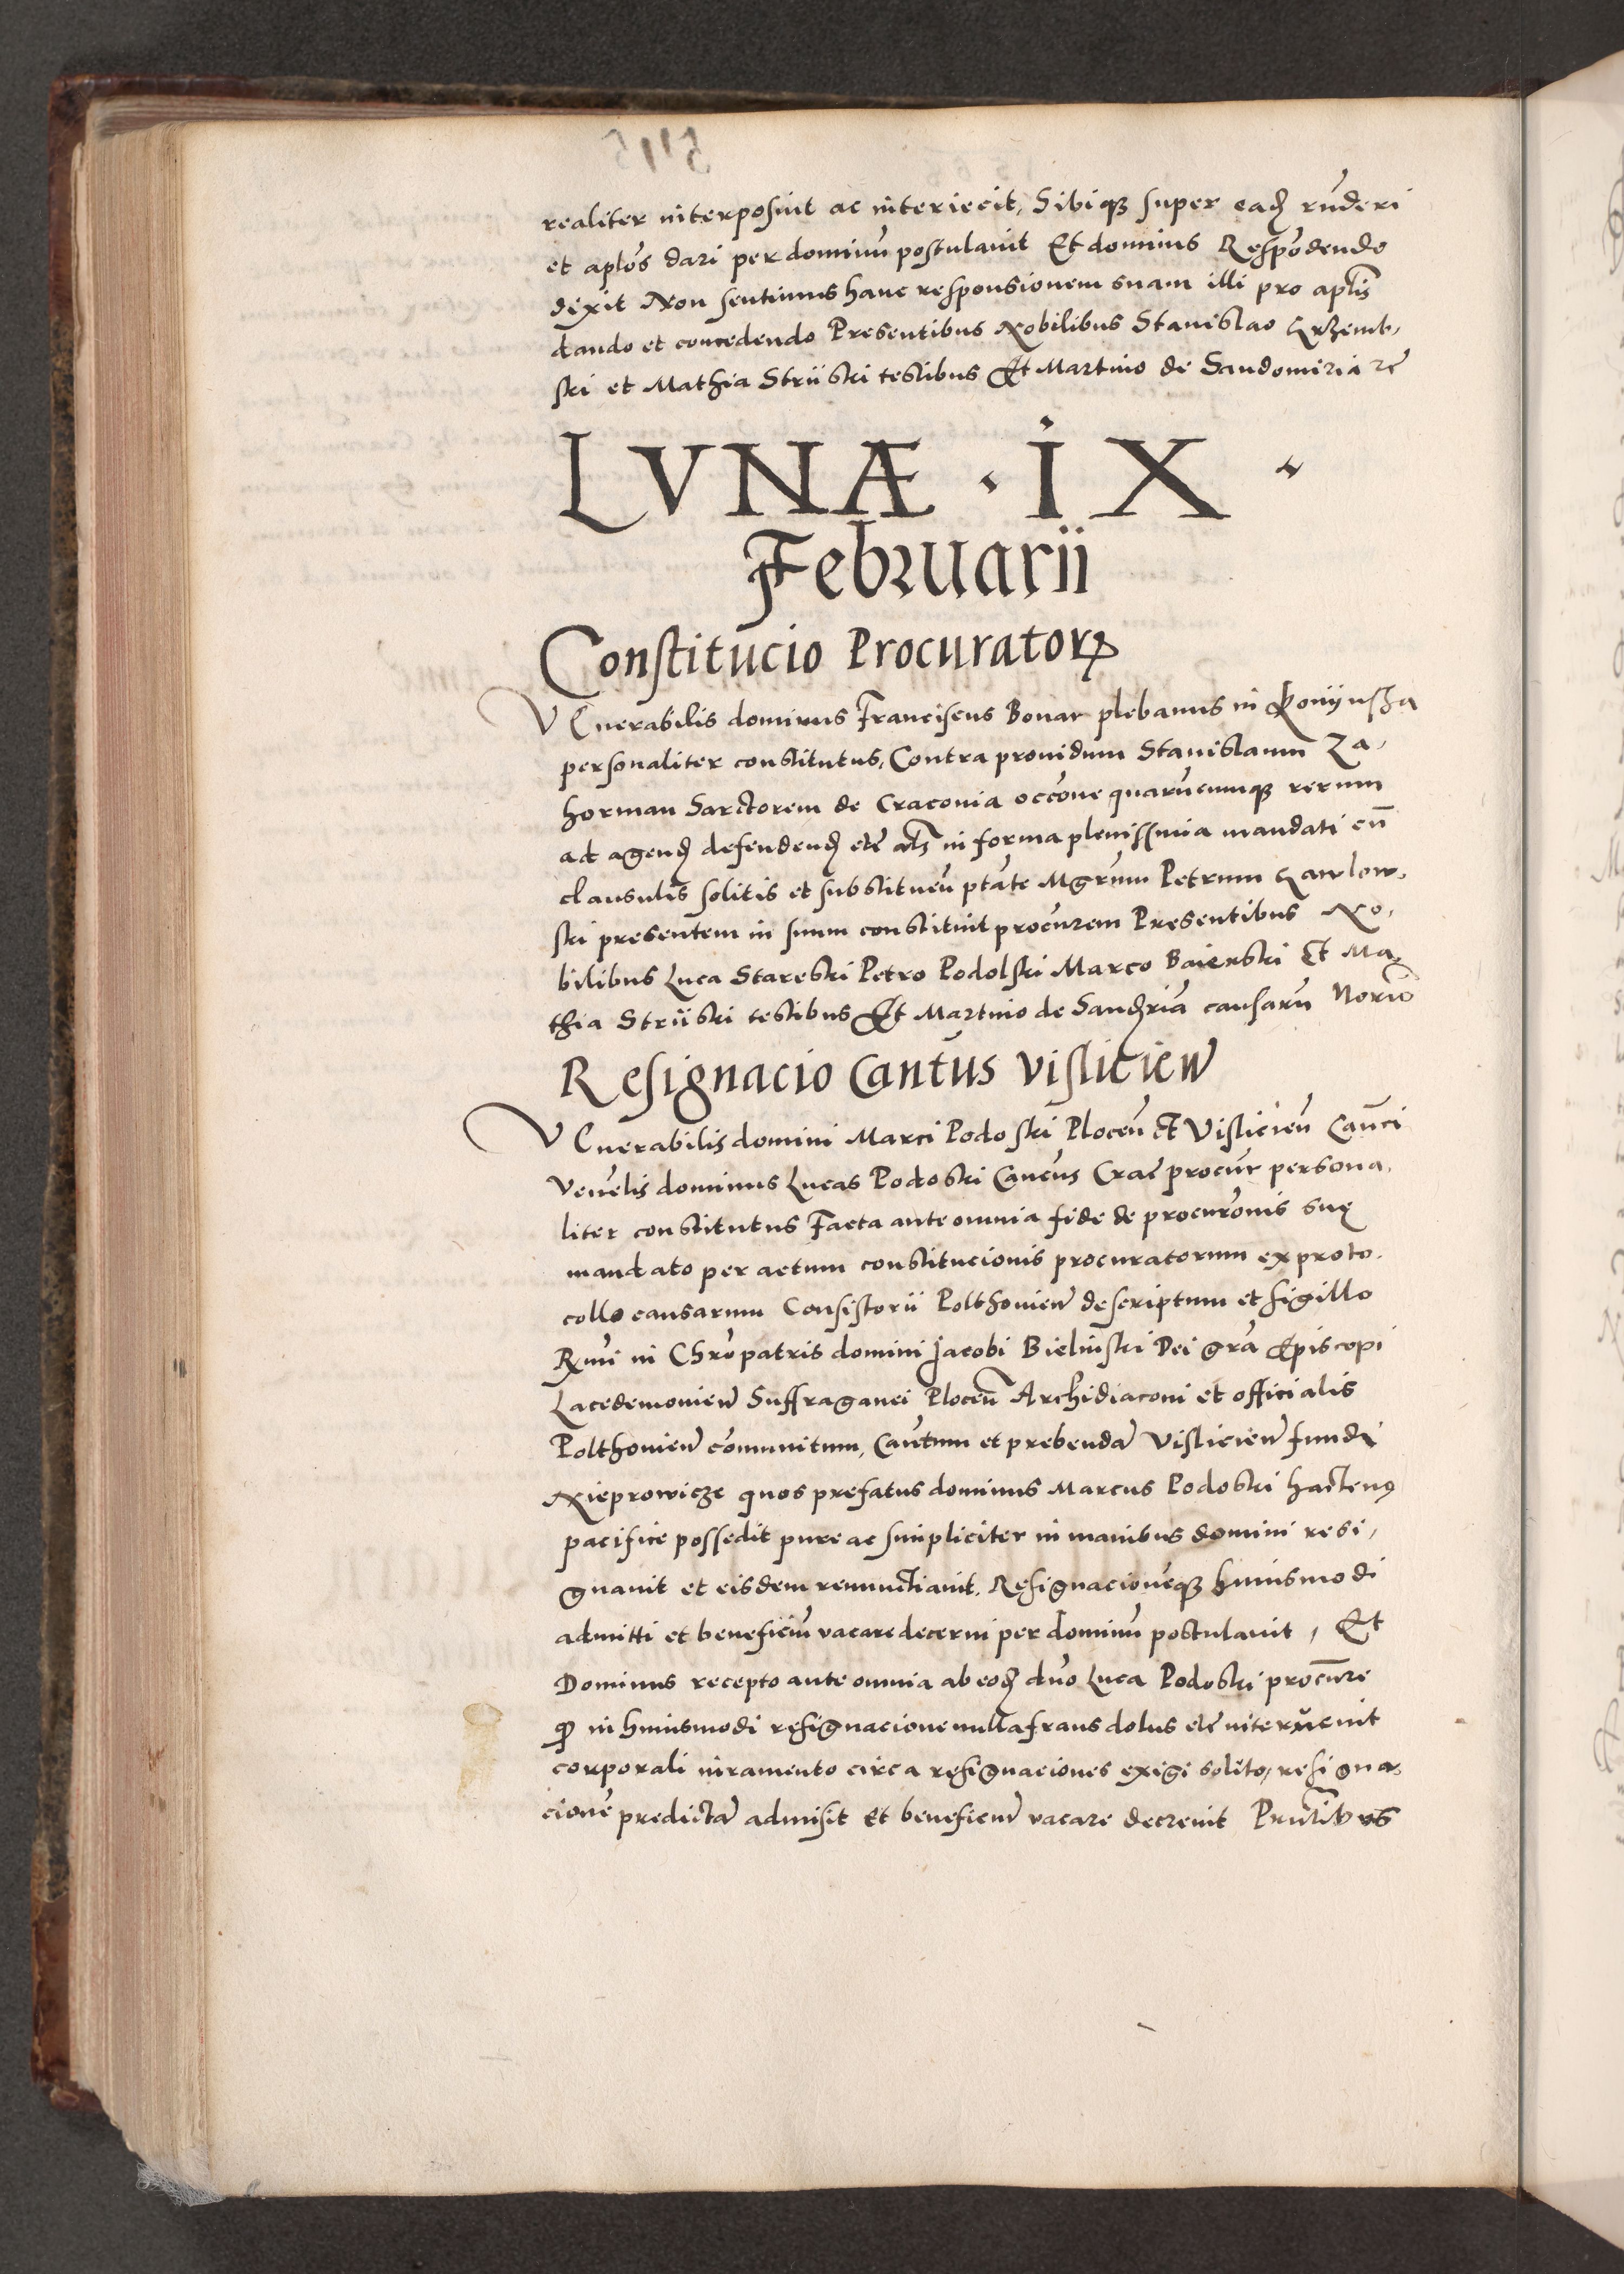 realiter interposuit ac interiecit, Sibiqꝫ super eadꝫ rūderi
et aplōs dari per dominū postulavit Et dominus Respōdendo
dixit Non sentimus hanc responsionem suam illi pro aptis
dando et concedendo Presentibus Nobilibus Stanislao
ski et Mathia Striiski testibus Et Martino de Sandomiria rē
LVNÆ · IX ·
Februarii
Constitucio Procuratorꝝ
VEnerabilis dominus Franciscus Bonar plebanus in
personaliter constitutus, Contra providum Stanislaum Za,
horman Sarctorem de Cracovia occōne quarūcumqꝫ rerum
ad agendꝫ defendendꝫ etc̄ als̄ in forma plenissima mandati cū
clausulis solitis et substituēn ptāte Mgrūm Petrum Gawlow,
ski presentem in suum constituit procūrem Presentibus No,
bilibus Luca Stareski Petro Podolski Marco Baierski Et Ma,
thia Striiski testibus Et Martino de Sandꝫria causarū Norīo
Resignacio Cantūs Vislicien̄
VEnerabilis domini Marci Podoski Plocen̄ et Vislicien̄ Can̄ci
Venēlis dominus Lucas Podoski Cancūs Crac̄ procūr persona,
liter constitutus Facta ante omnia fide de procurōnis suę
mandato per actum constitucionis procuratorum ex proto,
collo causarum Consistorii Polthovien̄ descriptum et sigillo
Rx̄mi in Chrō patris domini Jacobi Bielinski Dei grā Episcopi
Lacedemonien̄ Suffraganei Plocen̄ Archidiaconi et officialis
Polthovien̄ cōmunitum, Cantum et prebendā Vislicien̄ fundi
Nieprowicze quos prefatus dominus Marcus Podoski hactenꝰ
pacifice possedit pure ac simpliciter in manibus domini resi,
gnavit et eisdem renunctiavit. Resignacionēqꝫ huiusmodi
admitti et beneficiū vacare decerni per dominū postulavit, Et
Dominus recepto ante omnia ab eodꝫ dn̄o Luca Podoski procūre
ꝙ in huiusmodi resignacione nulla fraus dolus etc̄ intervenit
corporali iuramento circa resignaciones exigi solito, resigna,
cionē predictā admisit Et beneficiū vacare decrevit Prn̄tibus